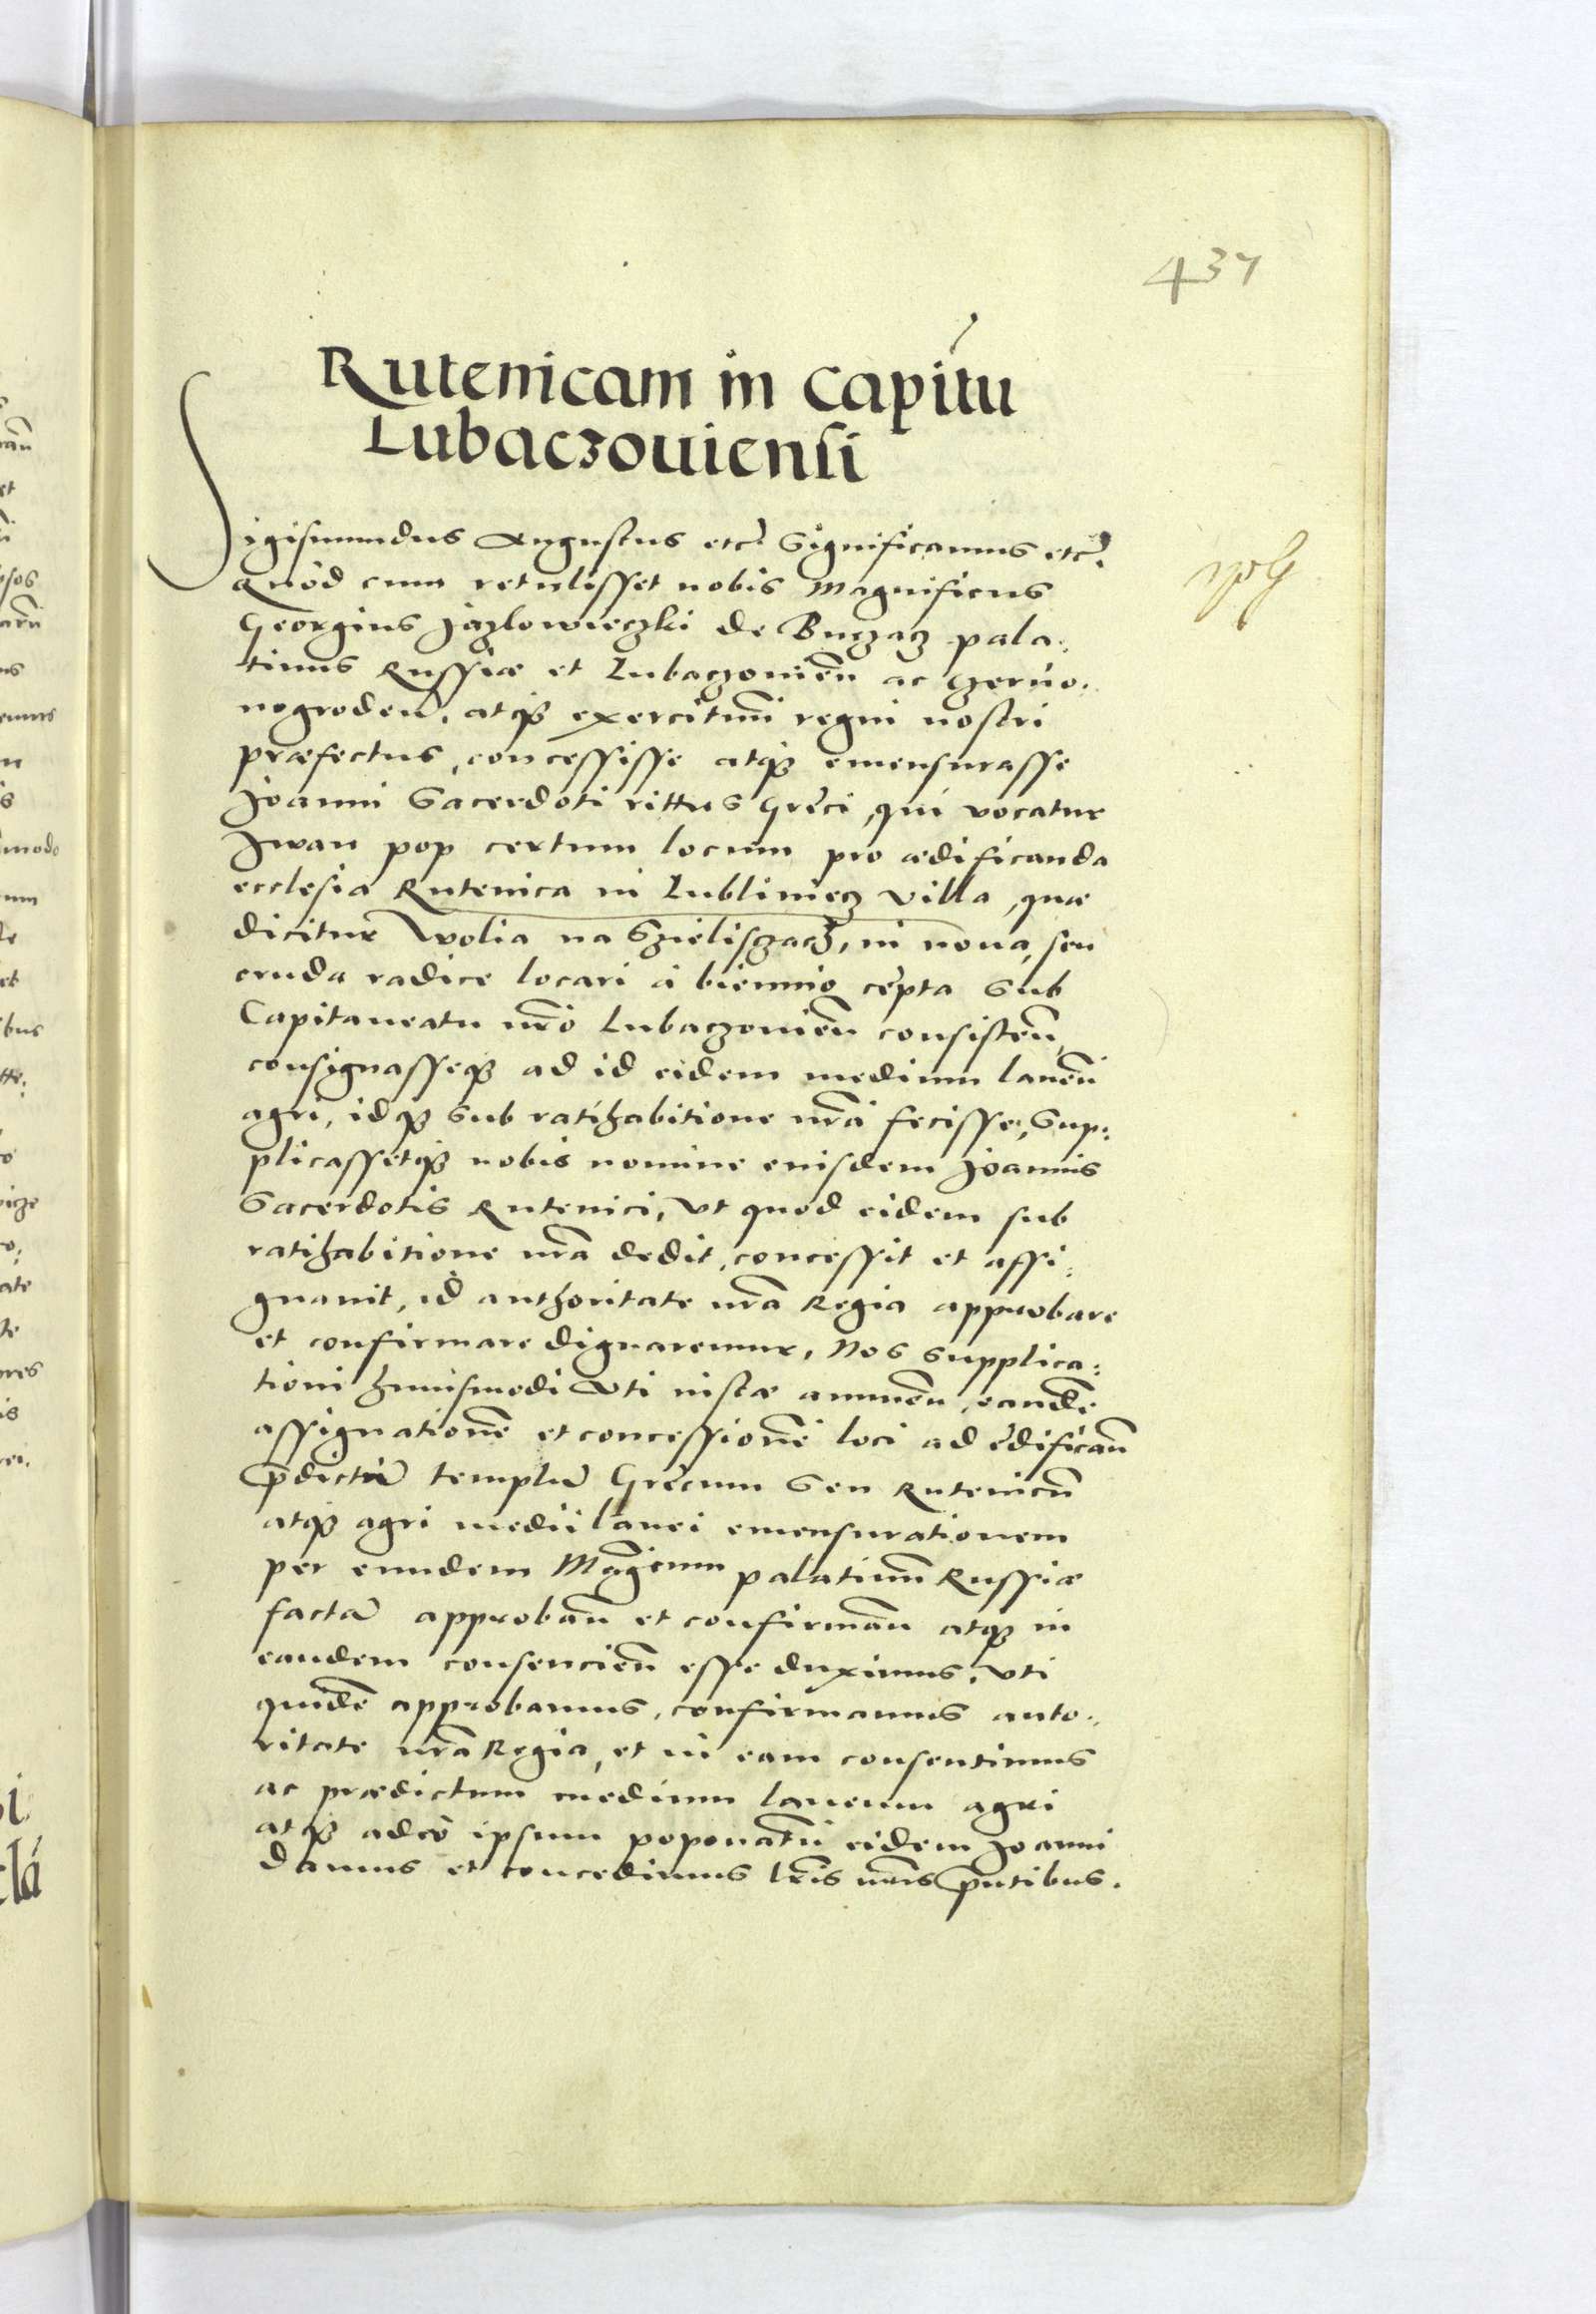 437
Rutenicam in Capitu
Lubaczouiensi
Sigismundus Augustus etc̃. Significamus etc̃.
Quod cum retulisset nobis Magnificus
Georgius Jazlowieczki de Buczacz pala:
tinus Russiæ et Lubaczouień ac Czerüo:
nogrodeń. atq₃ exercituũ regni nostri
præfectus, concessisse atq₃ emensurasse
Joanni Sacerdoti rittus Gręci, qui vocatur
Jwan pop certum locum pro ædificanda
ecclesia Rutenica in Lubliniecz villa, quæ
dicitur Wolia na Szieliszczach, in noua, seu
cruda radice locari à biennio cępta sub
Capitaneatu nr̃o Lubaczouień consisteñ,
consignasseq₃ ad id eidem medium laneũ
agri, idq₃ sub ratihabitione nr̃a fecisse, Sup:
plicassetq₃ nobis nomine eiusdem Joannis
Sacerdotis Rutenici, vt quod eidem sub
ratihabitione nr̃a dedit, concessit et assi:
gnauit, id authoritate nr̃a Regia approbare
et confirmare dignaremur, Nos supplica:
tioni huiusmodi vti iustæ annueñ, eandẽ
assignationẽ et concessionẽ loci ad ędificañ
p̃dictũ templũ Gręcum seu Rutenicũ
atq₃ agri medii lanei emensurationem
per eundem Mag̃cum palatinũ Russiæ
factã approbañ et confirmañ atq₃ in
eandem consencieñ esse duximus, vti
quidẽ approbamus, confirmamus auto:
ritate nr̃a Regia, et in eam consentimus
ac prædictum medium laneum agri
atq₃ adeo ipsum poponatũ eidem Joanni
damus et concedimus lr̃is nr̃is p̃ntibus.